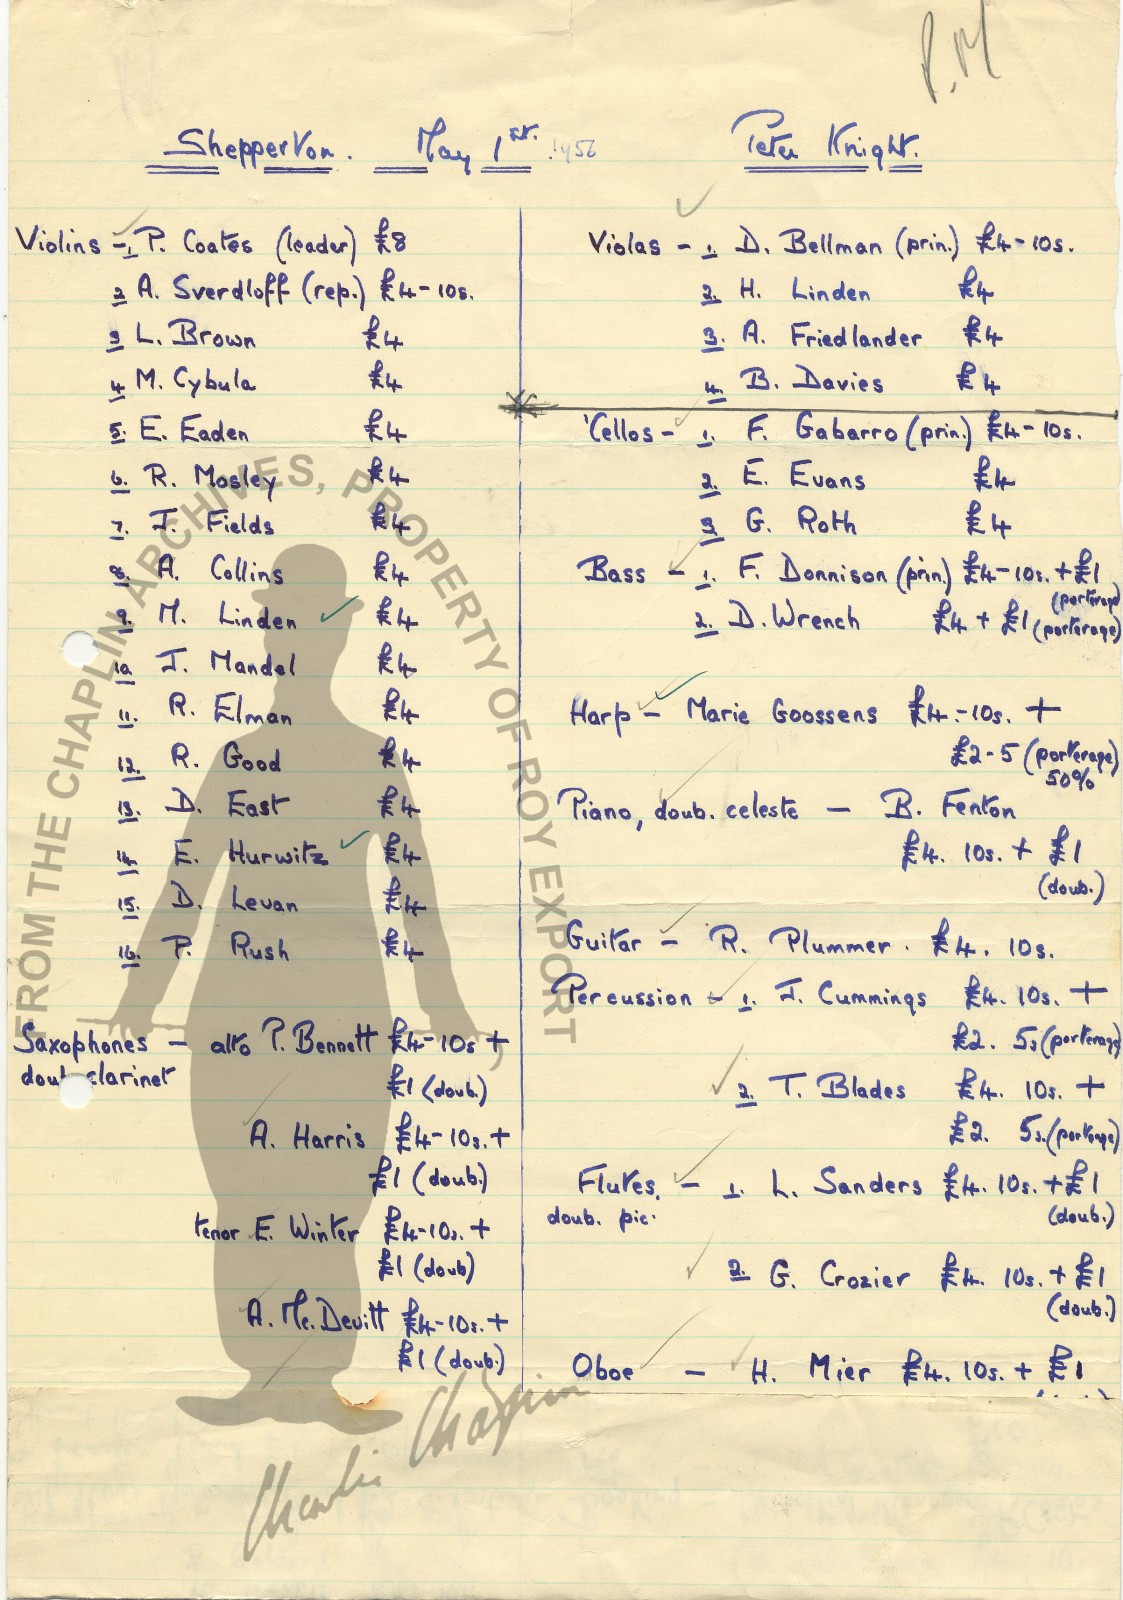 P.M
Shepperton. May 1st. 1956
Peter Knight.
Violins - 1. P. Coates (leader) £8
2 A. Sverdloff (rep.) £4-10s.
3 L. Brown £4
4 M. Cybula £4
5. E. Eaden £4
6. R. Mosley £4
7. J. Fields £4
8. A. Collins £4
9. M. Linden £4
10 J. Mandel £4
11. R. Elman £4
12. R. Good £4
13. D. East £4
14. E. Hurwitz £4
15. D. Levan £4
16. P. Rush £4
Saxophones - alto P. Bennett £4-10s +
doub. clarinet £1 (doub.)
A. Harris £4-10s. +
£1 (doub.)
tenor E. Winter £4-10s. +
£1 (doub)
A. Mc. Devitt £4-10s. +
£1 (doub.)
Violas - 1. D. Bellman (prin.) £4-10s.
2. H. Linden £4
3. A. Friedlander £4
4. B. Davies £4
'Cellos - 1. F. Gabarro (prin.) £4-10s.
2. E. Evans £4
3 G. Roth £4
Bass - 1. F. Donnison (prin.) £4-10s. + £1
(porterage)
2. D. Wrench £4 + £1 (porterage)
Harp - Marie Goossens £4.-10s. +
£2-5 (porterage)
50%
Piano, doub. celeste - B. Fenton
£4. 10s. + £1
(doub.)
Guitar - R. Plummer. £4. 10s.
Percussion - 1. J. Cummings £4. 10s. +
£2. 5s (porterage)
2. T. Blades £4. 10s. +
£2. 5s. (porterage)
Flutes, - 1. L. Sanders £4. 10s. + £1
doub. pic. (doub.)
2. G. Crozier £4. 10s. + £1
(doub.)
Oboe - H. Mier £4. 10s. + £1
FROM THE CHAPLIN ARCHIVES, PROPERTY OF ROY EXPORT
Charlie Chaplin